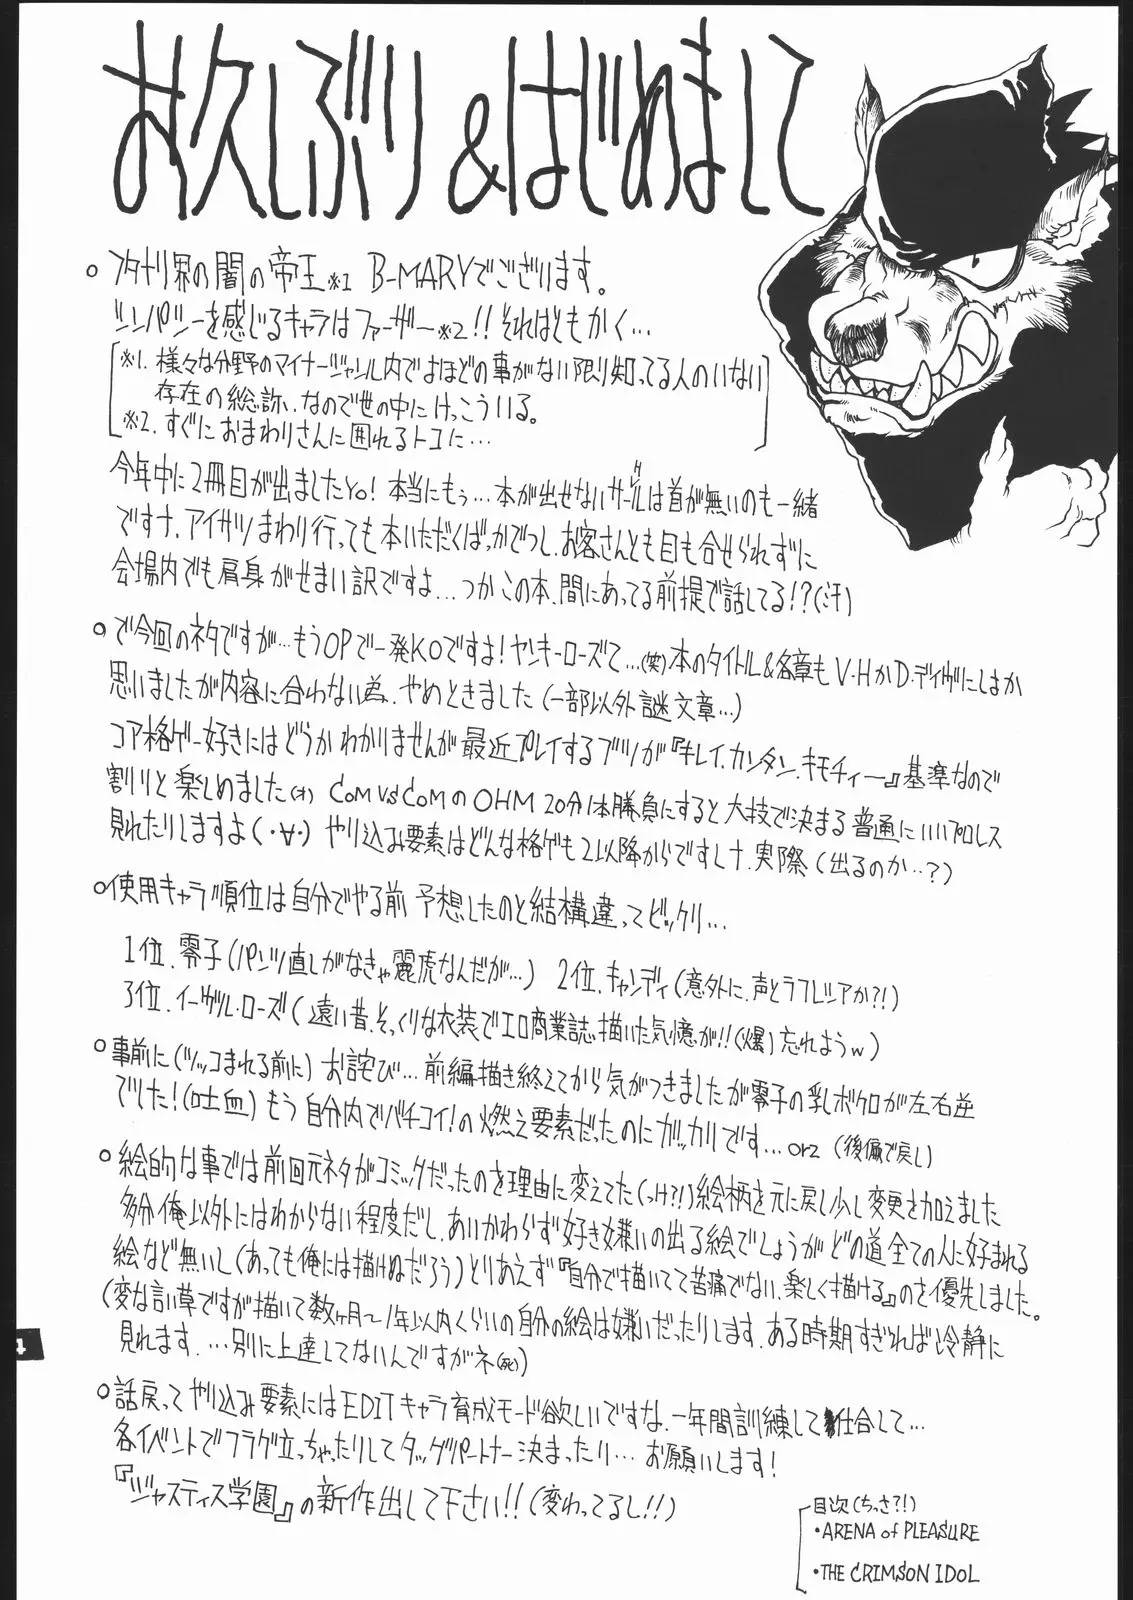 お久しぶり&はじめまして
○フタナリ界の闇の帝王※1 B-MARYでございます。
シンパシーを感じるキャラはファーザー※2!!それはともかく…
※1. 様々な分野のマイナージャンル内でよほどの事がない限り知ってる人のいない
存在の総称、なので世の中にけっこういる。
※2. すぐにおまわりさんに囲れるトコに…
今年中に2冊目が出ましたYo!本当にもぅ…本が出せないサークルは首が無いのも一緒
ですナ.アイサツまわり行っても本いただくばっかでつし、お客さんとも目も合せられずに
会場内でも肩身がせまい訳ですよ…つかこの本、間にあってる前提で話してる!?(汗)
○で今回のネタですが…もうOPで一発KOですよ!ヤンキーローズて…(笑)本のタイトル&各章もV・HかD・デイヴにしよか
思いましたが内容に合わない為、やめときました(一部以外謎文章…)
コア格ゲー好きにはどうかわかりませんが最近プレイするブツが『キレイ.カンタン.キモチィー』基準なので
割りと楽しめました(オ) COM VS COMのOHM 20分1本勝負にすると大技で決まる普通にいいプロレス
見れたりしますよ(・∀・)やり込み要素はどんな格ゲも2以降からですしナ.実際(出るのか…?)
○使用キャラ順位は自分でやる前予想したのと結構違ってビックリ…
1位.零子(パンツ直しがなきゃ麗虎なんだが…) 2位.キャンディ(意外に、声とラフレシアか?!)
3位.イーヴル・ローズ(遠い昔.そっくりな衣装でエロ商業誌描いた気憶が!!(爆)忘れようw)
○事前に(ツッコまれる前に)お詫び…前編描き終えてから気がつきましたが零子の乳ボクロが左右逆
でした!(吐血)もう自分内でバチコイ!の燃え要素だったのにガッカリです…orz (後編で戻し)
○絵的な事では前回元ネタがコミックだったのを理由に変えてた(っけ?!)絵柄を元に戻し少し変更を加えました
多分俺以外にはわからない程度だし、あいかわらず好き嫌いの出る絵でしょうがどの道全ての人に好まれる
絵など無いし(あっても俺には描けぬだろう)とりあえず『自分で描いてて苦痛でない、楽しく描ける』のを優先しました。
(変な言い草ですが描いて数ヶ月〜1年以内くらいの自分の絵は嫌いだったりします.ある時期すぎれば冷静に
見れます.…別に上達してないんですがネ(死))
○話戻ってやり込み要素にはEDITキャラ育成モード欲しいですな.一年間訓練して仕合して…
各イベントでフラグ立っちゃたりしてタッグパートナー決まったり…お願いします!
『ジャスティス学園』の新作出して下さい!!(変わってるし!!)
目次(ちっさ?!)
・ARENA of PLEASURE
・THE CRIMSON IDOL
4